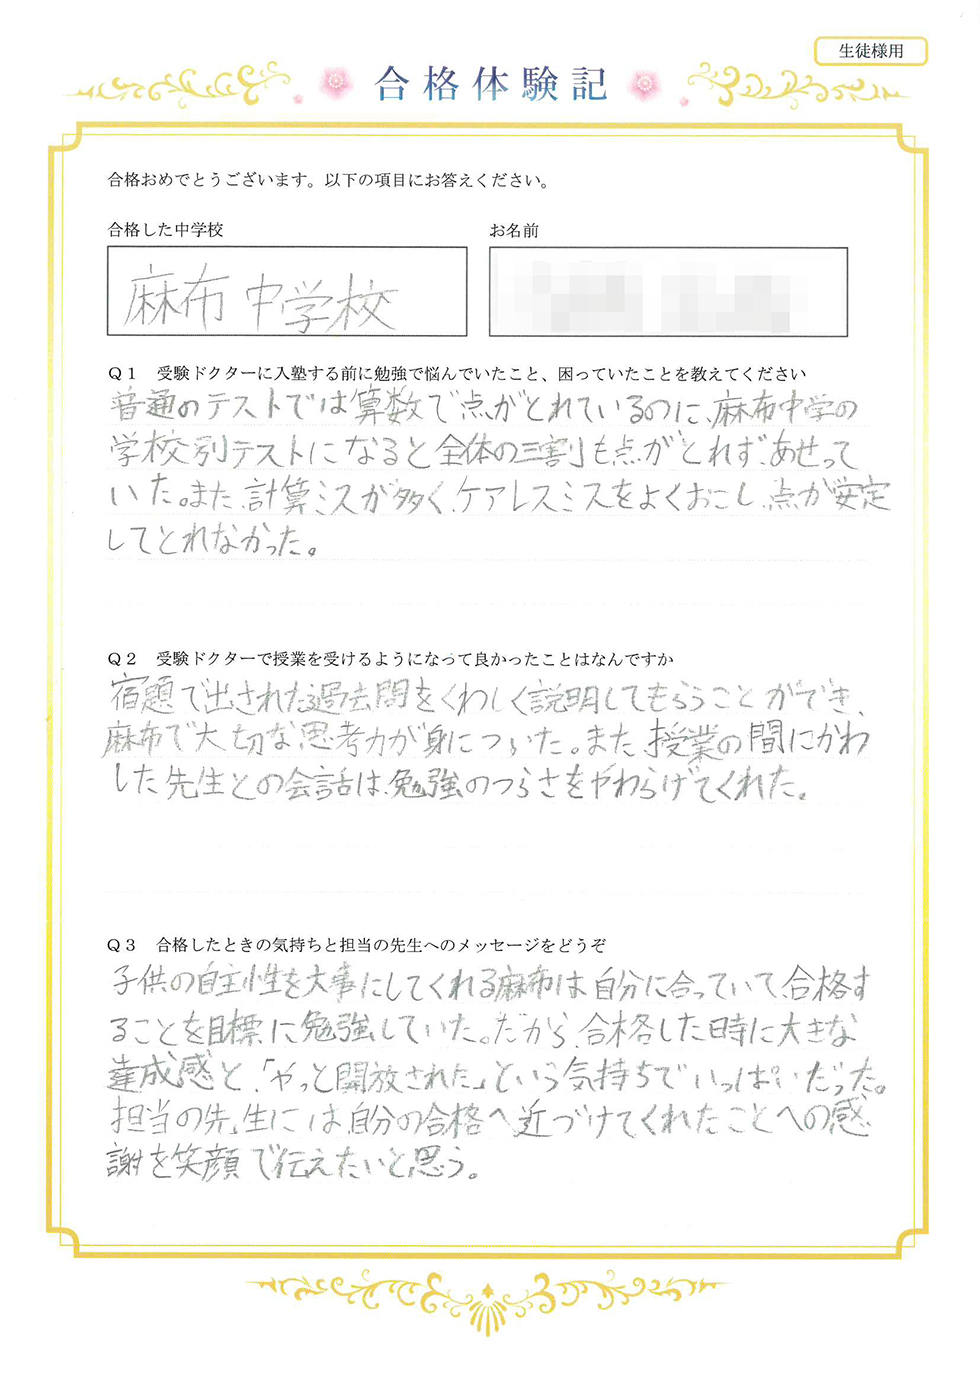 生徒様用
合格体験記
合格おめでとうございます。以下の項目にお答えください。
合格した中学校
お名前
麻布中学校
Q1 受験ドクターに入塾する前に勉強で悩んでいたこと、困っていたことを教えてください
普通のテストでは算数で点がとれているのに、麻布中学の
学校別テストになると全体の三割も点がとれず、あせって
いた。また、計算ミスが多く、ケアレスミスをよくおこし、点が安定
してとれなかった。
Q2 受験ドクターで授業を受けるようになって良かったことはなんですか
宿題で出された過去問をくわしく説明してもらうことができ、
麻布で大切な思考力が身についた。また、授業の間にかわ
した先生との会話は、勉強のつらさをやわらげてくれた。
Q3 合格したときの気持ちと担当の先生へのメッセージをどうぞ
子供の自主性を大事にしてくれる麻布は自分に合っていて、合格す
ることを目標に勉強していた。だから、合格した時に大きな
達成感と、「やっと開放された」という気持ちでいっぱいだった。
担当の先生には、自分の合格へ近づけてくれたことへの感
謝を笑顔で伝えたいと思う。